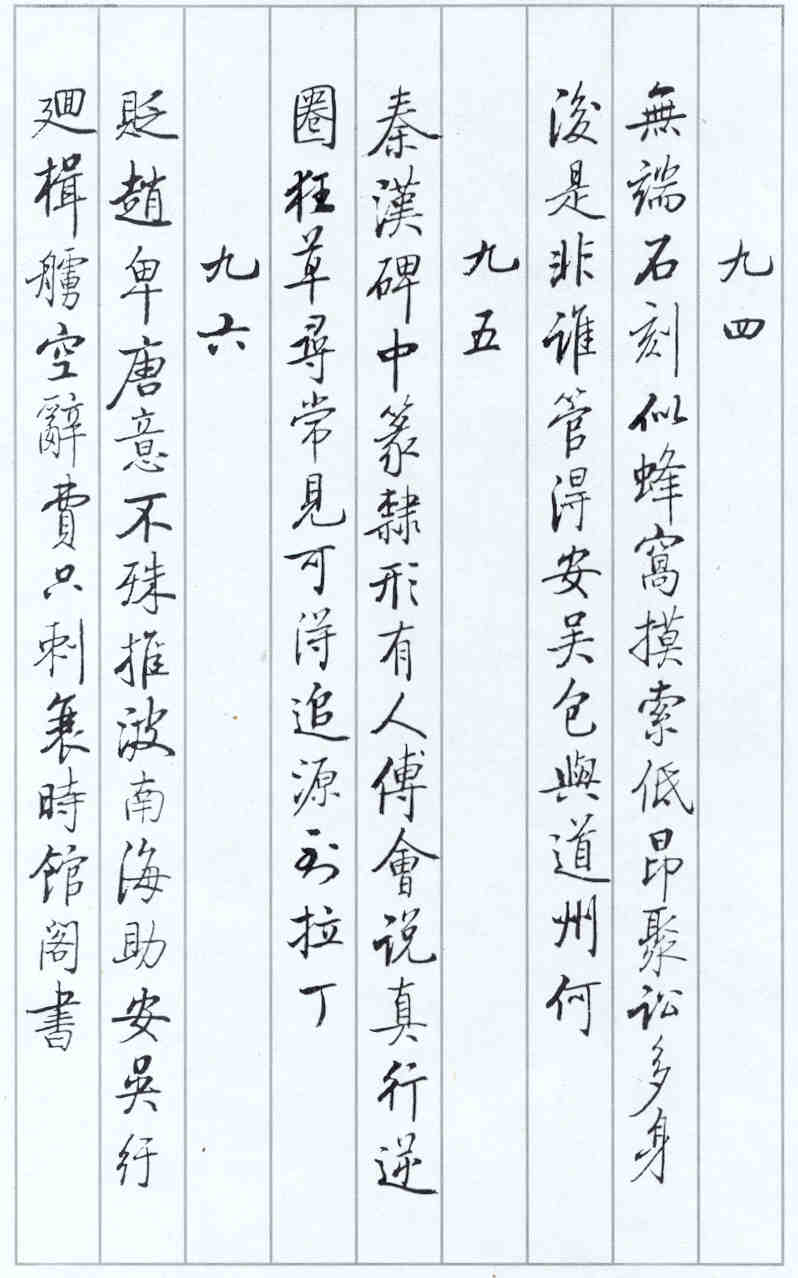 九四
無端石刻似蜂窩摸索低昂聚訟多身
後是非誰管得安吴包與道州何
九五
秦漢碑中篆隸形有人傅會说真行逆
圈狂草尋常見可得追源到拉丁
九六
貶趙卑唐意不殊推波南海助安吳紆
廻楫艣空辭費只刺衰時館阁書